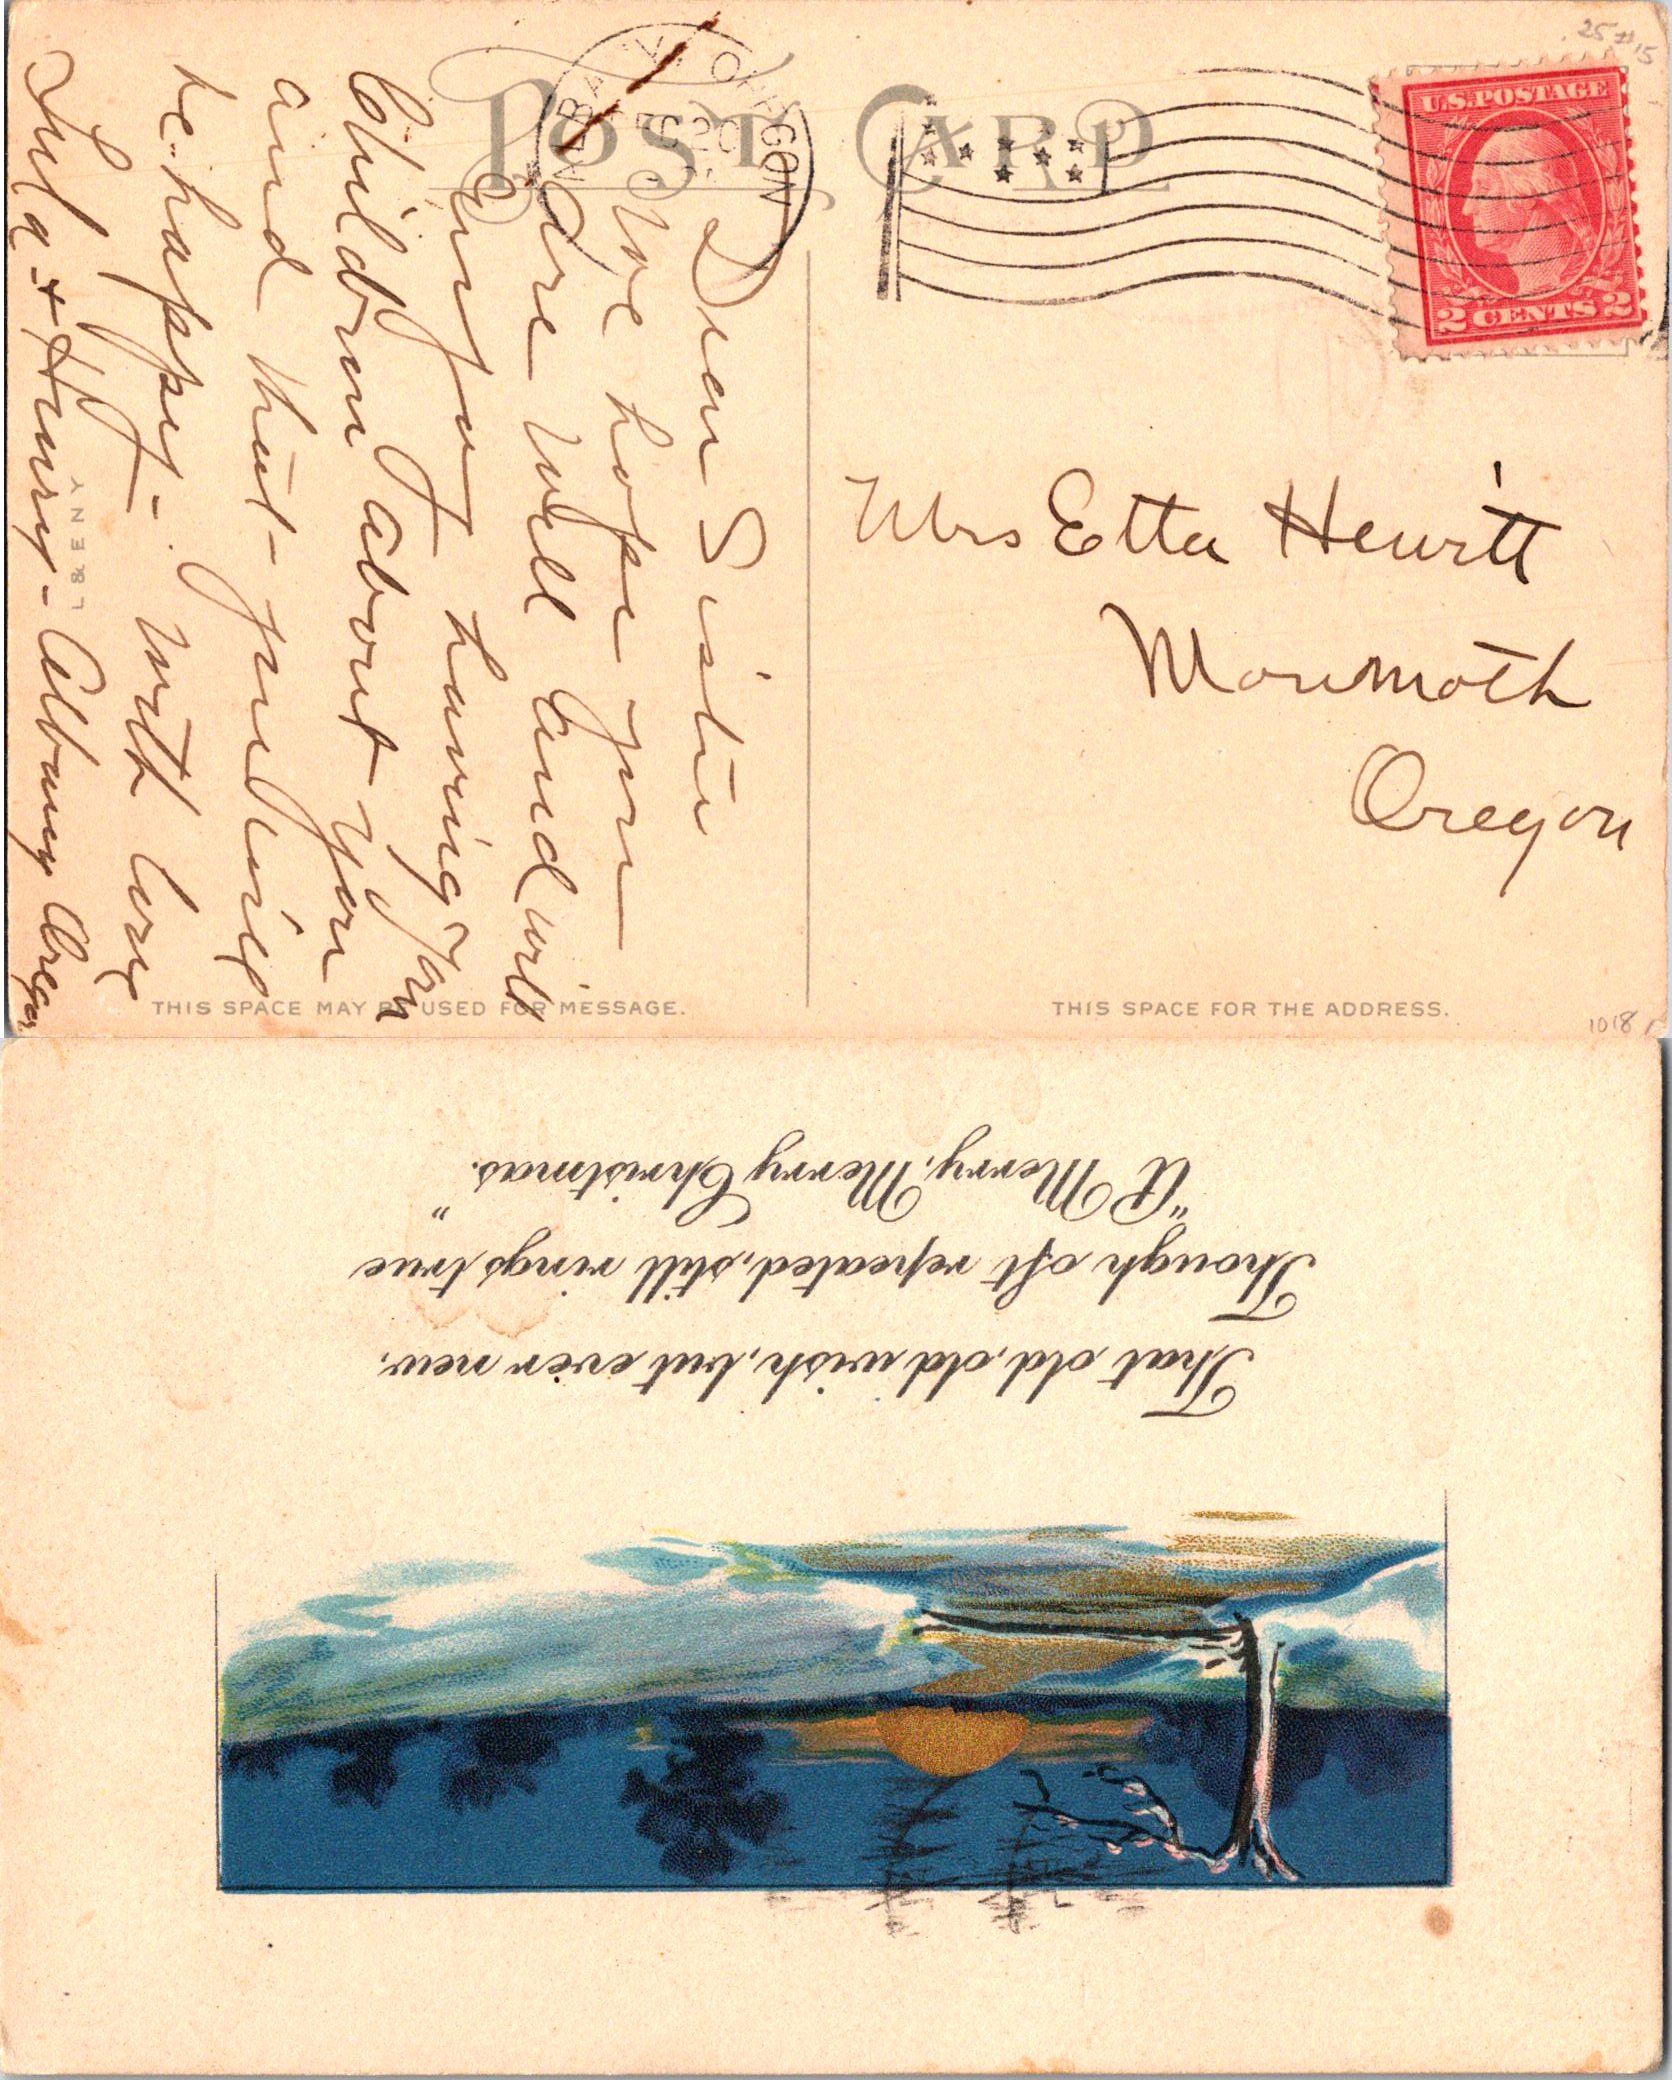 POST CARD
ALBANY OREGON
DEC 20
U.S. POSTAGE
2 CENTS 2
25
15
Dear Sister
We hope you
are well and will
enjoy having your
Children about you
and that you will
be happy - with love
Lula + Henry - Albany Oregon
L & E N Y
Mrs Etta Hewitt
Monmoth
Oregon
THIS SPACE MAY BE USED FOR MESSAGE.
THIS SPACE FOR THE ADDRESS.
1018
That old, old wish, but ever new,
Though oft repeated, still rings true
"A Merry, Merry Christmas."